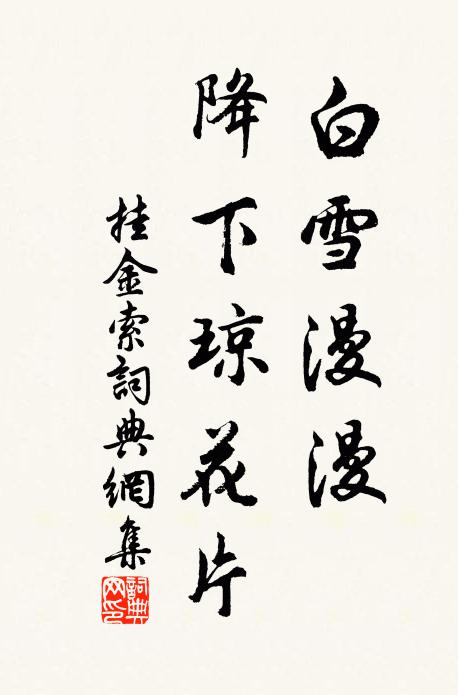 白雪漫漫
降下琼花片
挂金索詞典網集
詞典网印